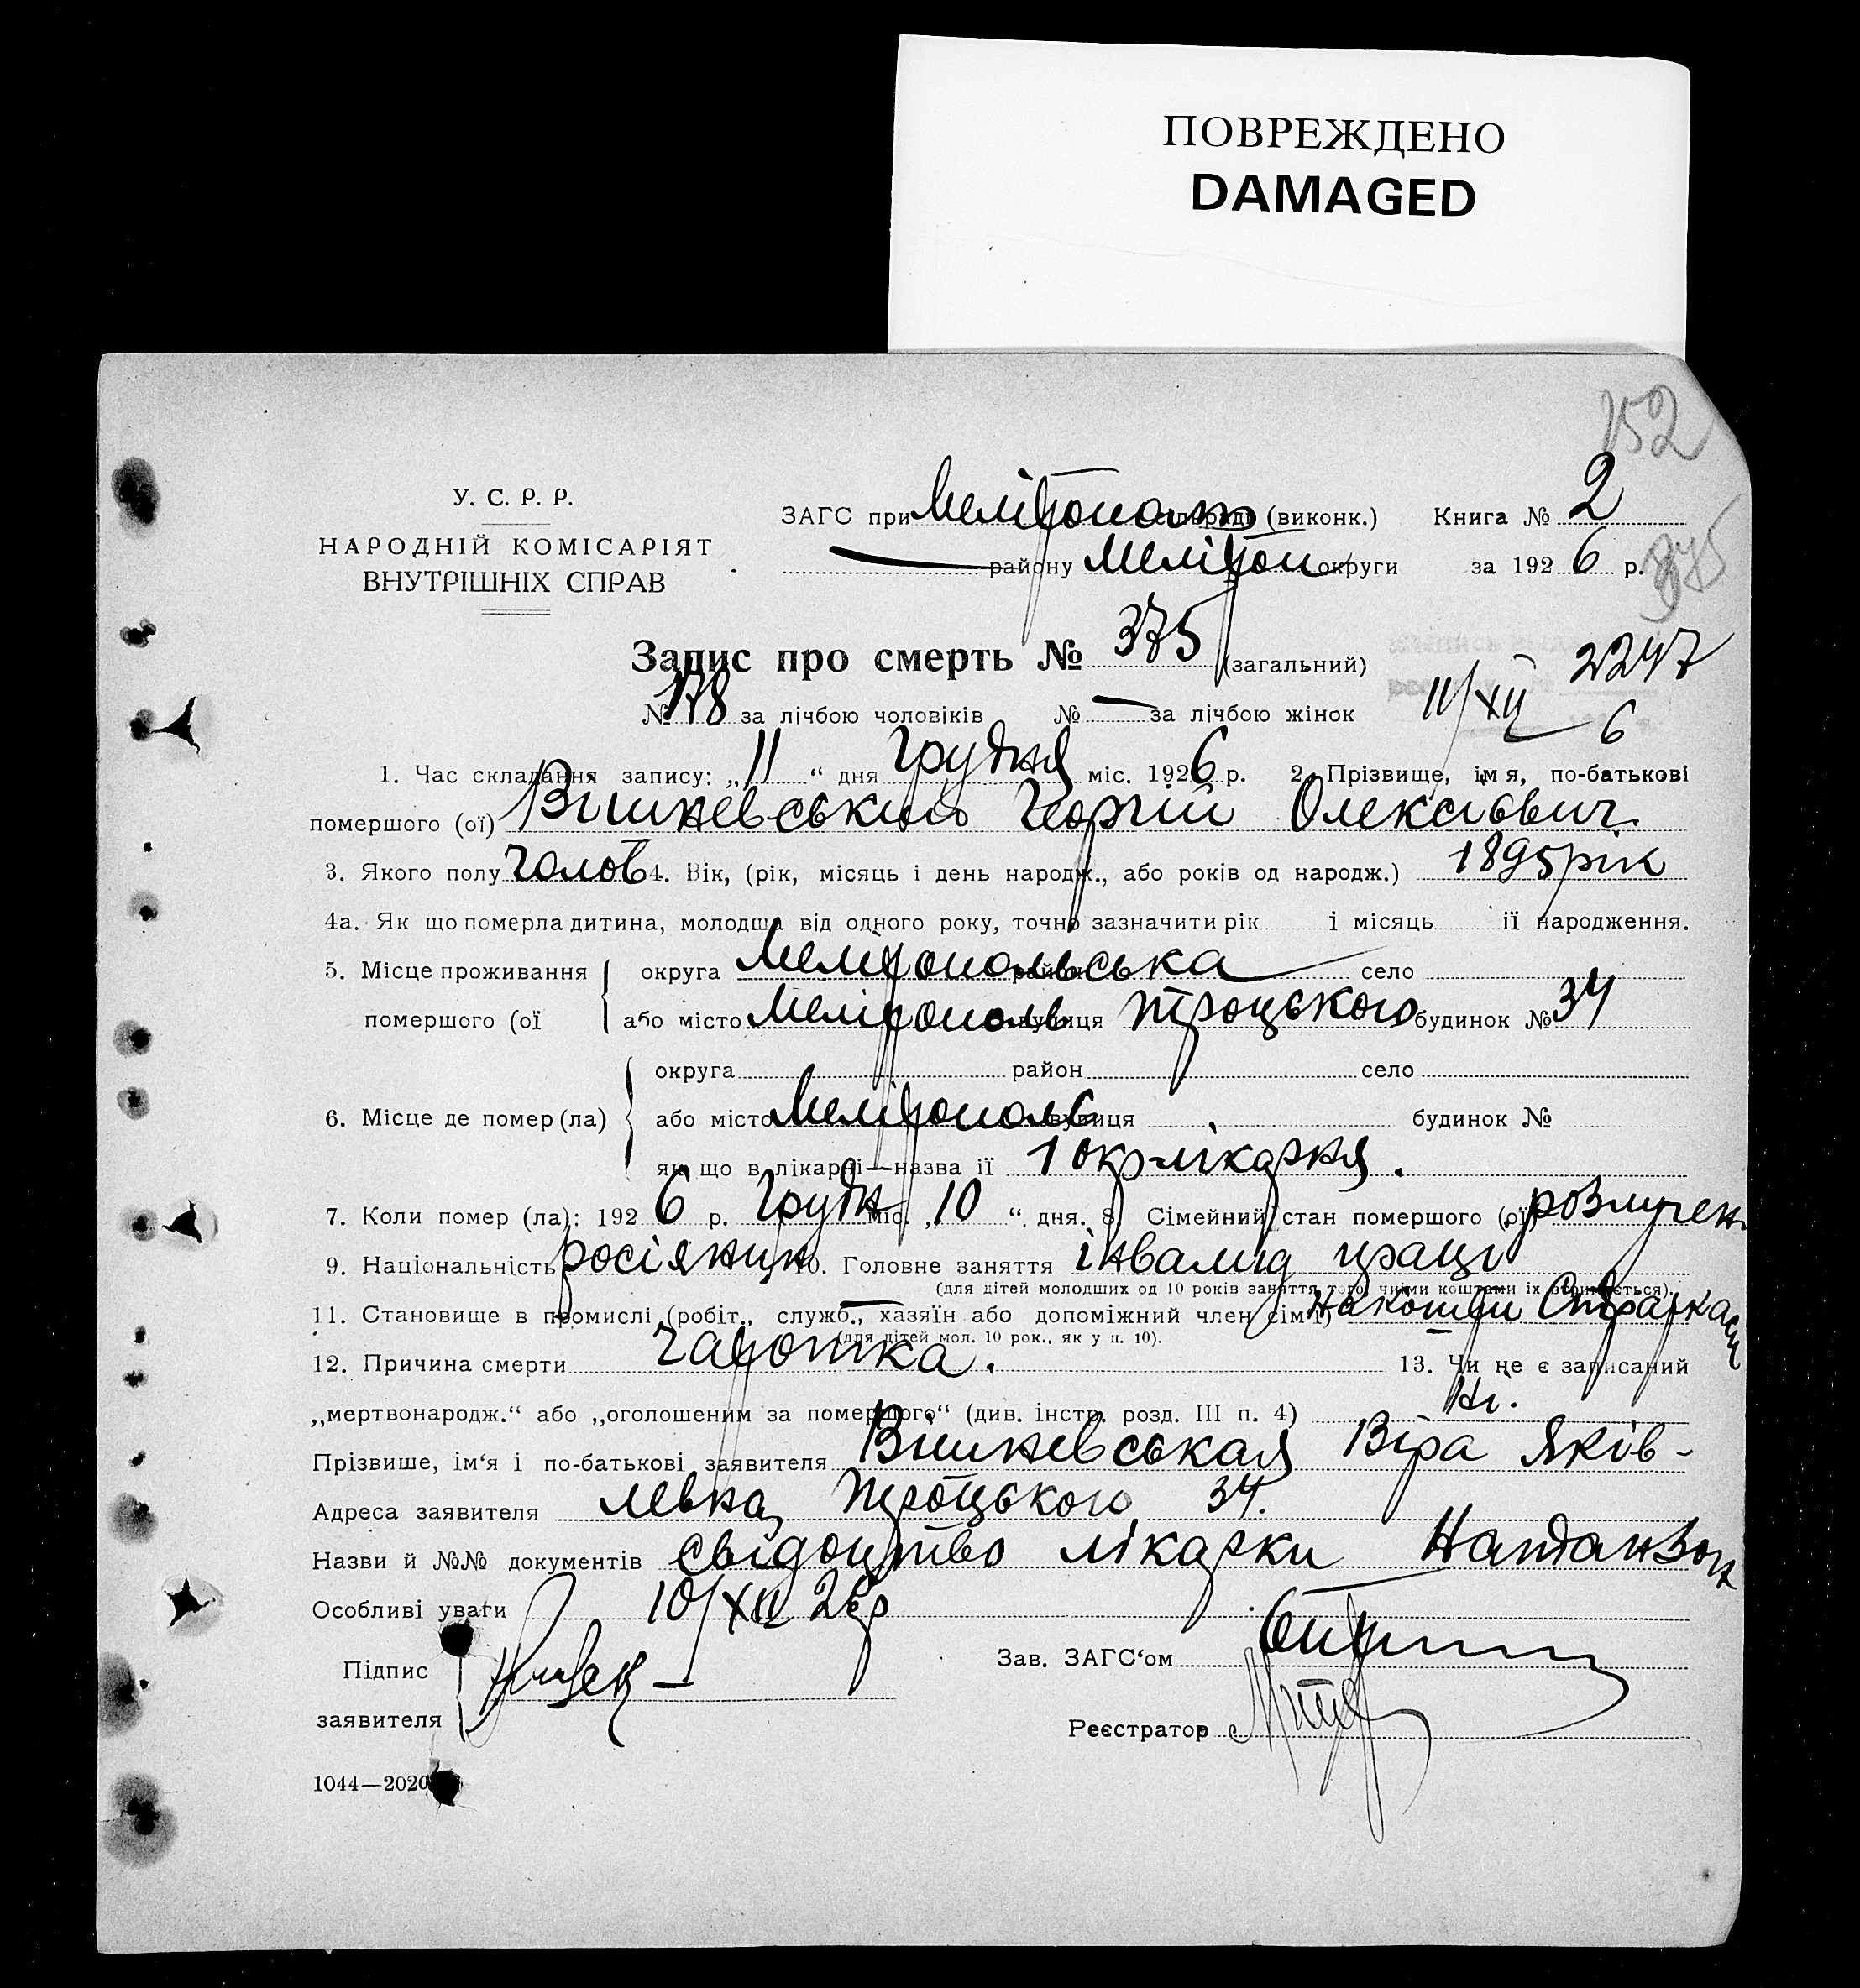 ПОВРЕЖДЕНО
DAMAGED
152
У. С. Р. Р.
НАРОДНІЙ КОМІСАРІЯТ
ВНУТРІШНІХ СПРАВ
ЗАГС при Мелітополь сільраді (виконк.) Книга № 2
району Мелітоп округи за 1926 р.
375
Запис про смерть № 375 (загальний)
№ 178 за лічбою чоловіків № — за лічбою жінок
11/XII 2247
6
1. Час складання запису: „11“ дня Грудня міс. 1926 р. 2. Прізвище, імя, по-батькові
помершого (ої) Вишневський Георгій Олексієвич
3. Якого полу чолов 4. Вік, (рік, місяць і день народж., або років од народж.) 1895 рік
4а. Як що померла дитина, молодша від одного року, точно зазначити рік і місяць ії народження.
5. Місце проживання помершого (ої
округа Мелітопольська район село
або місто Мелітополь вулиця Троцького будинок № 34
6. Місце де помер (ла)
округа район село
або місто Мелітополь вулиця будинок №
як що в лікарні—назва ії 1 окр лікарня.
7. Коли помер (ла): 1926 р. Грудн міс. „10“ дня. 8. Сімейний стан помершого (ої) розлучен.
9. Національність росіянин 10. Головне заняття інвалид праці
(для дітей молодших од 10 років заняття того, чиїми коштами їх втримається).
11. Становище в промислі (робіт., служб., хазяїн або допоміжний член сім'ї) на кошти Страхкаси
(для дітей мол. 10 рок., як у п. 10).
12. Причина смерти чахотка. 13. Чи не є записаний
„мертвонародж.“ або „оголошеним за померлого“ (див. інстр. розд. III п. 4) Ні.
Прізвише, ім'я і по-батькові заявителя Вишневськая Віра Яків-
Адреса заявителя левна, Троцького 34.
Назви й №№ документів свідоцтво лікарки Натанзон
Особливі уваги 10/XII 26 р
Підпис
заявителя
Зав. ЗАГС'ом
Реєстратор
1044—2020